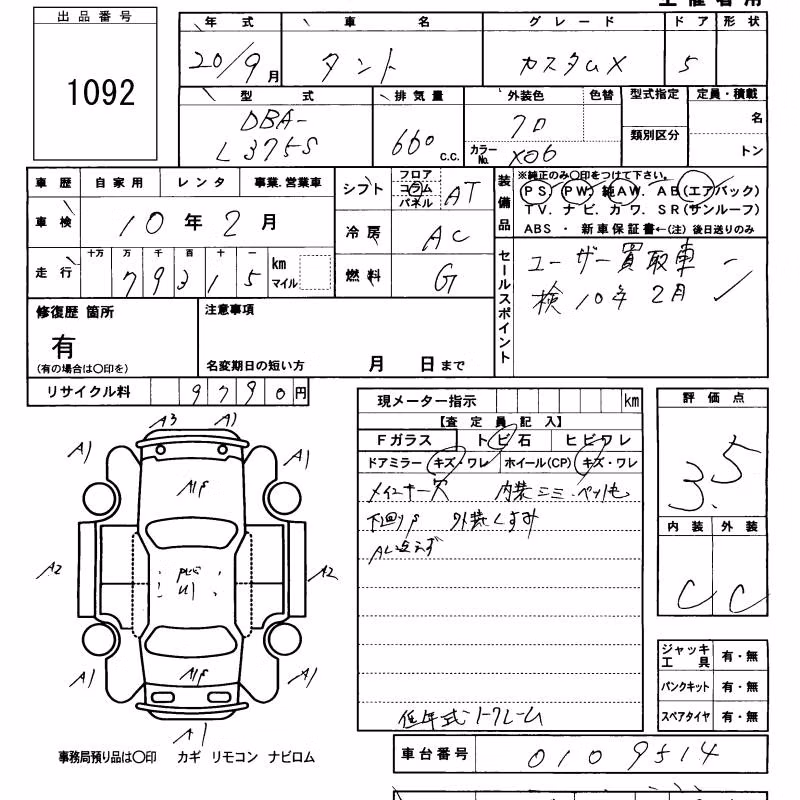 出品番号
1092
年式 車名 グレード ドア 形状
20/9月 タント カスタムX 5
型式 排気量 外装色 色替 型式指定 定員・積載
DBA-
L375S 660 c.c. クロ 類別区分 名
カラーNo. X06 トン
車歴 自家用 レンタ 事業.営業車
シフト フロア コラム パネル AT
装備品 ※純正のみ〇印をつけて下さい。
PS PW 純AW. AB(エアバック)
TV. ナビ. カワ. SR(サンルーフ)
ABS ・ 新車保証書←(注) 後日送りのみ
車検 10年2月
冷房 AC
走行 十万 万 千 百 十 一
79315 km マイル
燃料 G
セールスポイント ユーザー買取車
検10年2月
修復歴 箇所
有
(有の場合は〇印を)
注意事項
名変期日の短い方 月 日まで
リサイクル料 9790円
現メーター指示 km
【査定員記入】
Fガラス トビ石 ヒビワレ
ドアミラー キズ・ワレ ホイール(CP) キズ・ワレ
内装シミ・ペット毛
下回りS 外装くすみ
低年式・トフレーム
評価点
3.5
内装 外装
C C
A3 A1
A1 A1
A1P
A2 A2
U1
A1 A1P A1
A1
ジャッキ工具 有・無
パンクキット 有・無
スペアタイヤ 有・無
事務局預り品は〇印 カギ リモコン ナビロム
車台番号 0109514